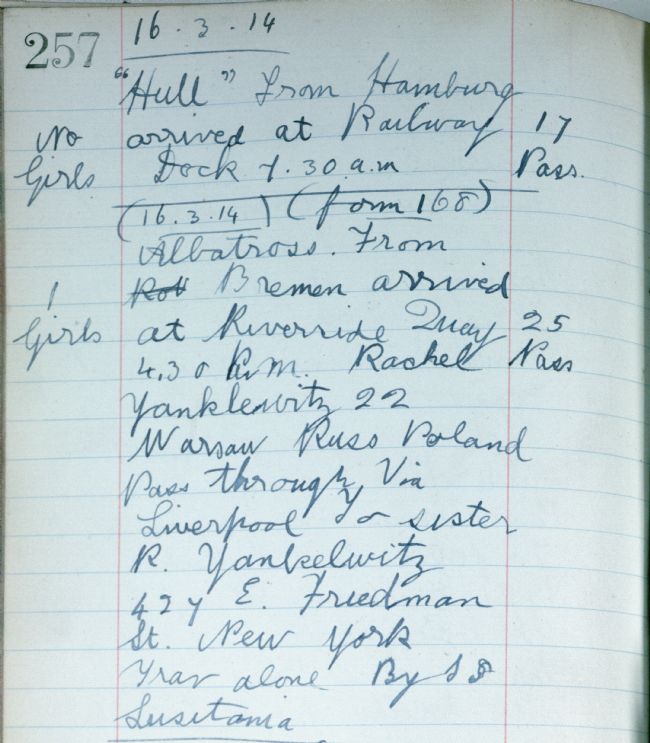 257
16.3.14
"Hull" From Hamburg
No arrived at Railway 17
Girls Dock 7.30 a.m Pass.
(16.3.14) (form 168)
Albatross. From
1 Rot Bremen arrived
Girls at Riverside Quay 25
4.30 P.M. Rachel Pass
Yanklewitz 22
Warsaw Russ Poland
Pass through Via
Liverpool to sister
R. Yankelwitz
427 E. Friedman
St. New York
Trav alone By SS
Lusitania